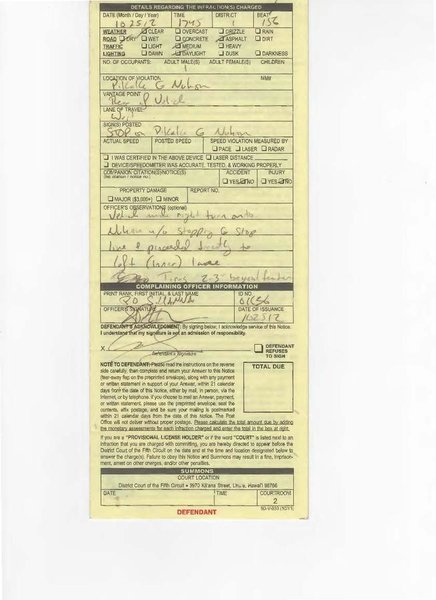 DETAILS REGARDING THE INFRACTION(S) CHARGED
DATE (Month / Day / Year) TIME DISTRICT BEAT
102512 1745 1 156
WEATHER CLEAR OVERCAST DRIZZLE RAIN
ROAD DRY WET CONCRETE ASPHALT DIRT
TRAFFIC LIGHT MEDIUM HEAVY
LIGHTING DAWN DAYLIGHT DUSK DARKNESS
NO. OF OCCUPANTS: ADULT MALE(S) ADULT FEMALE(S) CHILDREN
1
LOCATION OF VIOLATION MM#
VANTAGE POINT
Rear of Vehicle
LANE OF TRAVEL
SIGN(S) POSTED
STOP on
ACTUAL SPEED POSTED SPEED SPEED VIOLATION MEASURED BY
PACE LASER RADAR
I WAS CERTIFIED IN THE ABOVE DEVICE LASER DISTANCE
DEVICE/SPEEDOMETER WAS ACCURATE, TESTED & WORKING PROPERLY
COMPANION CITATION(S)/NOTICE(S) ACCIDENT INJURY
(list citation / notice no.) YES NO YES NO
PROPERTY DAMAGE REPORT NO.
MAJOR ($3,000+) MINOR
OFFICER'S OBSERVATIONS (optional)
Vehicle made right turn onto
w/o stopping @ stop
line & proceeded directly to
left (inner) lane
Tires 2-3' beyond
COMPLAINING OFFICER INFORMATION
PRINT RANK, FIRST INITIAL, & LAST NAME ID NO
OFFICER'S SIGNATURE DATE OF ISSUANCE
102512
DEFENDANT'S ACKNOWLEDGMENT: By signing below, I acknowledge service of this Notice.
I understand that my signature is not an admission of responsibility.
X
Defendant's Signature
DEFENDANT
REFUSES
TO SIGN
NOTE TO DEFENDANT: Please read the instructions on the reverse
side carefully, then complete and return your Answer to this Notice
(tear-away flap on the preprinted envelope), along with any payment
or written statement in support of your Answer, within 21 calendar
days from the date of this Notice, either by mail, in person, via the
Internet, or by telephone. If you choose to mail an Answer, payment,
or written statement, please use the preprinted envelope, seal the
contents, affix postage, and be sure your mailing is postmarked
within 21 calendar days from the date of this Notice. The Post
Office will not deliver without proper postage. Please calculate the total amount due by adding
the monetary assessments for each infraction charged and enter the total in the box at right.
TOTAL DUE
If you are a "PROVISIONAL LICENSE HOLDER" or if the word "COURT" is listed next to an
infraction that you are charged with committing, you are hereby directed to appear before the
District Court of the Fifth Circuit on the date and at the time and location designated below to
answer the charge(s). Failure to obey this Notice and Summons may result in a fine, impris-
onment, arrest on other energies, and/or other penalties.
SUMMONS
COURT LOCATION
District Court of the Fifth Circuit • 3970 Ka'ana Street, Lihu'e, Hawai'i 96766
DATE TIME COURTROOM
2
DEFENDANT